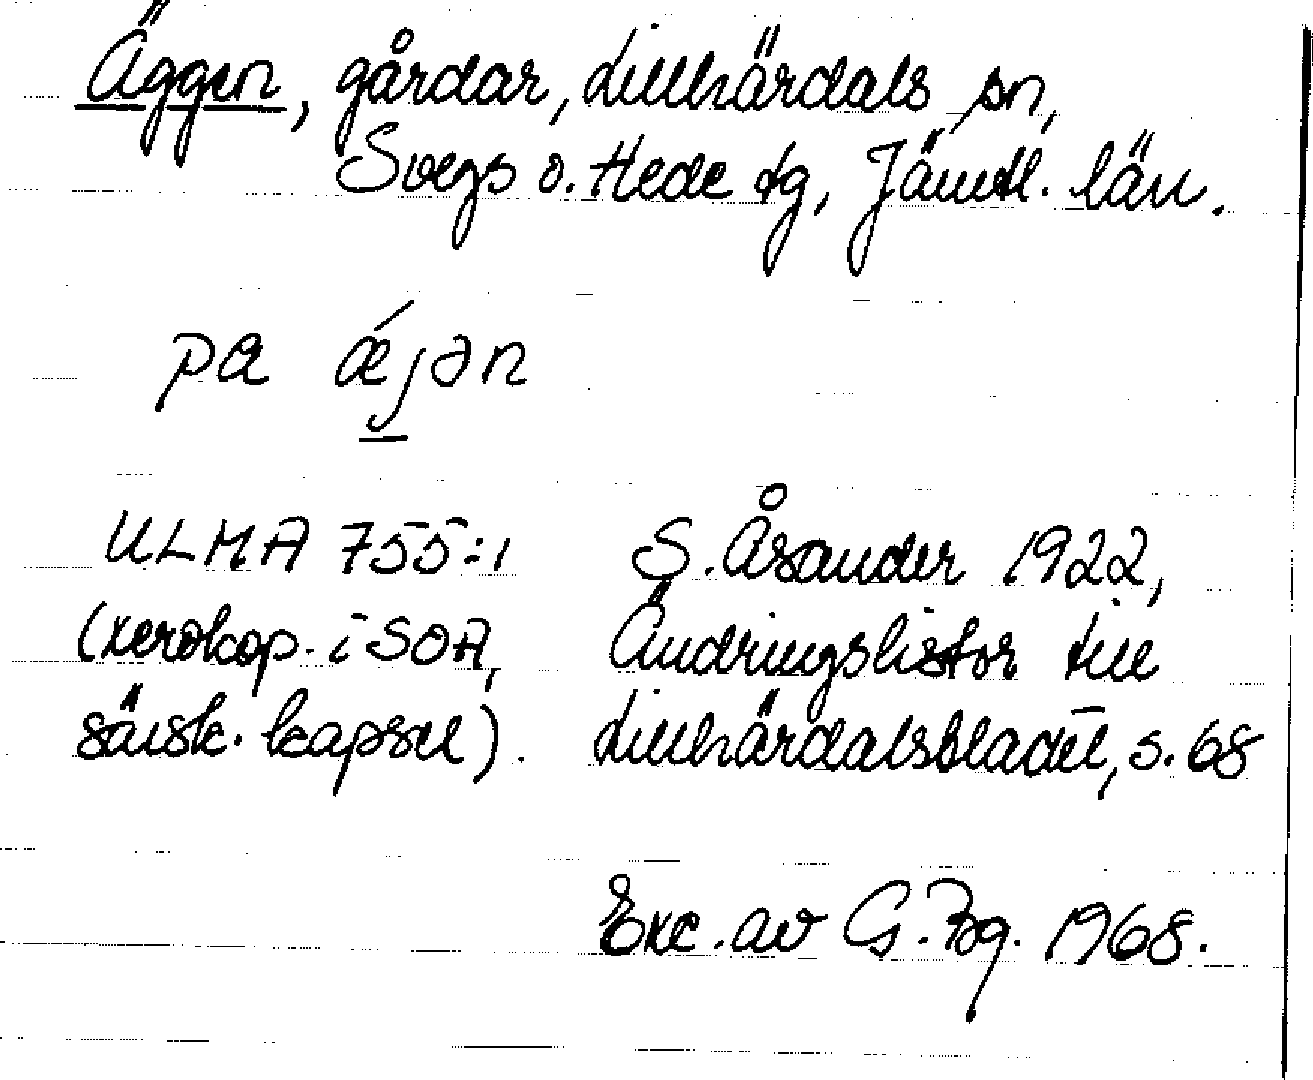 Äggen, gårdar, Lillhärdals sn,
Svegs o. Hede tg, Jämtl. län.
pa ǽjən
ULMA 755:1
(xerokop. i SOA,
särsk. kapsel).
S. Åsander 1922,
Ändringslistor till
Lillhärdalsbladet, s. 68
Exc. av G. Bg. 1968.